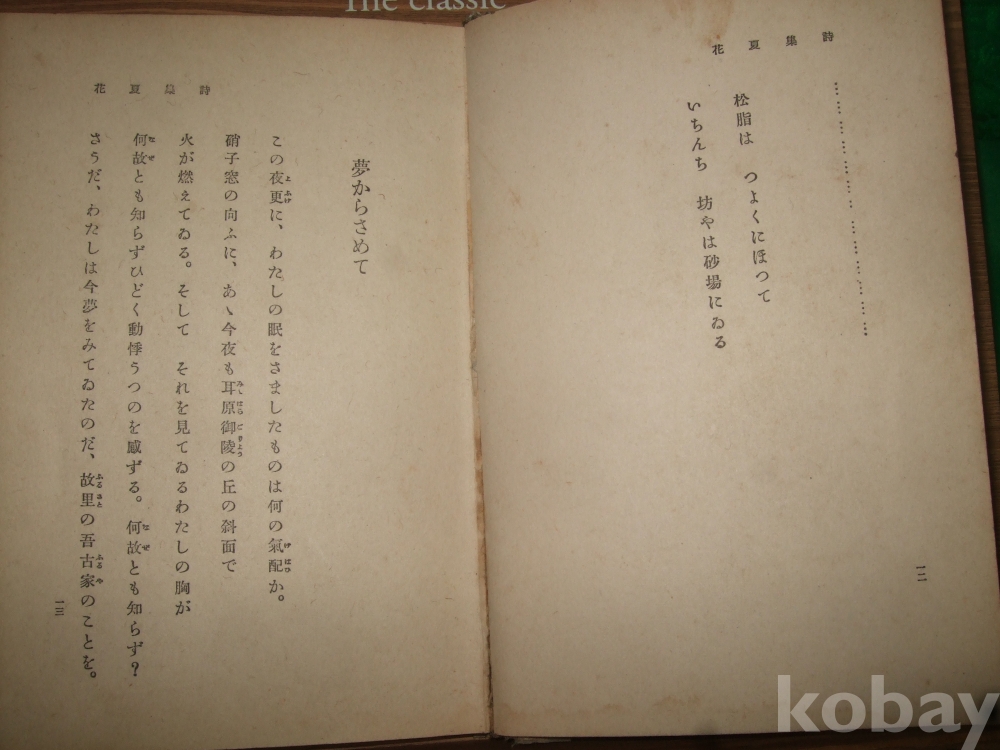 The classic
詩集夏花
………………………………………
松脂は　つよくにほつて
いちんち　坊やは砂場にゐる
一二
詩集夏花
夢からさめて
この夜更に、わたしの眠をさましたものは何の氣配か。
硝子窓の向ふに、あゝ今夜も耳原御陵の丘の斜面で
火が燃えてゐる。そして　それを見てゐるわたしの胸が
何故とも知らずひどく動悸うつのを感ずる。何故とも知らず？
さうだ、わたしは今夢をみてゐたのだ、故里の吾古家のことを。
一三
kobay